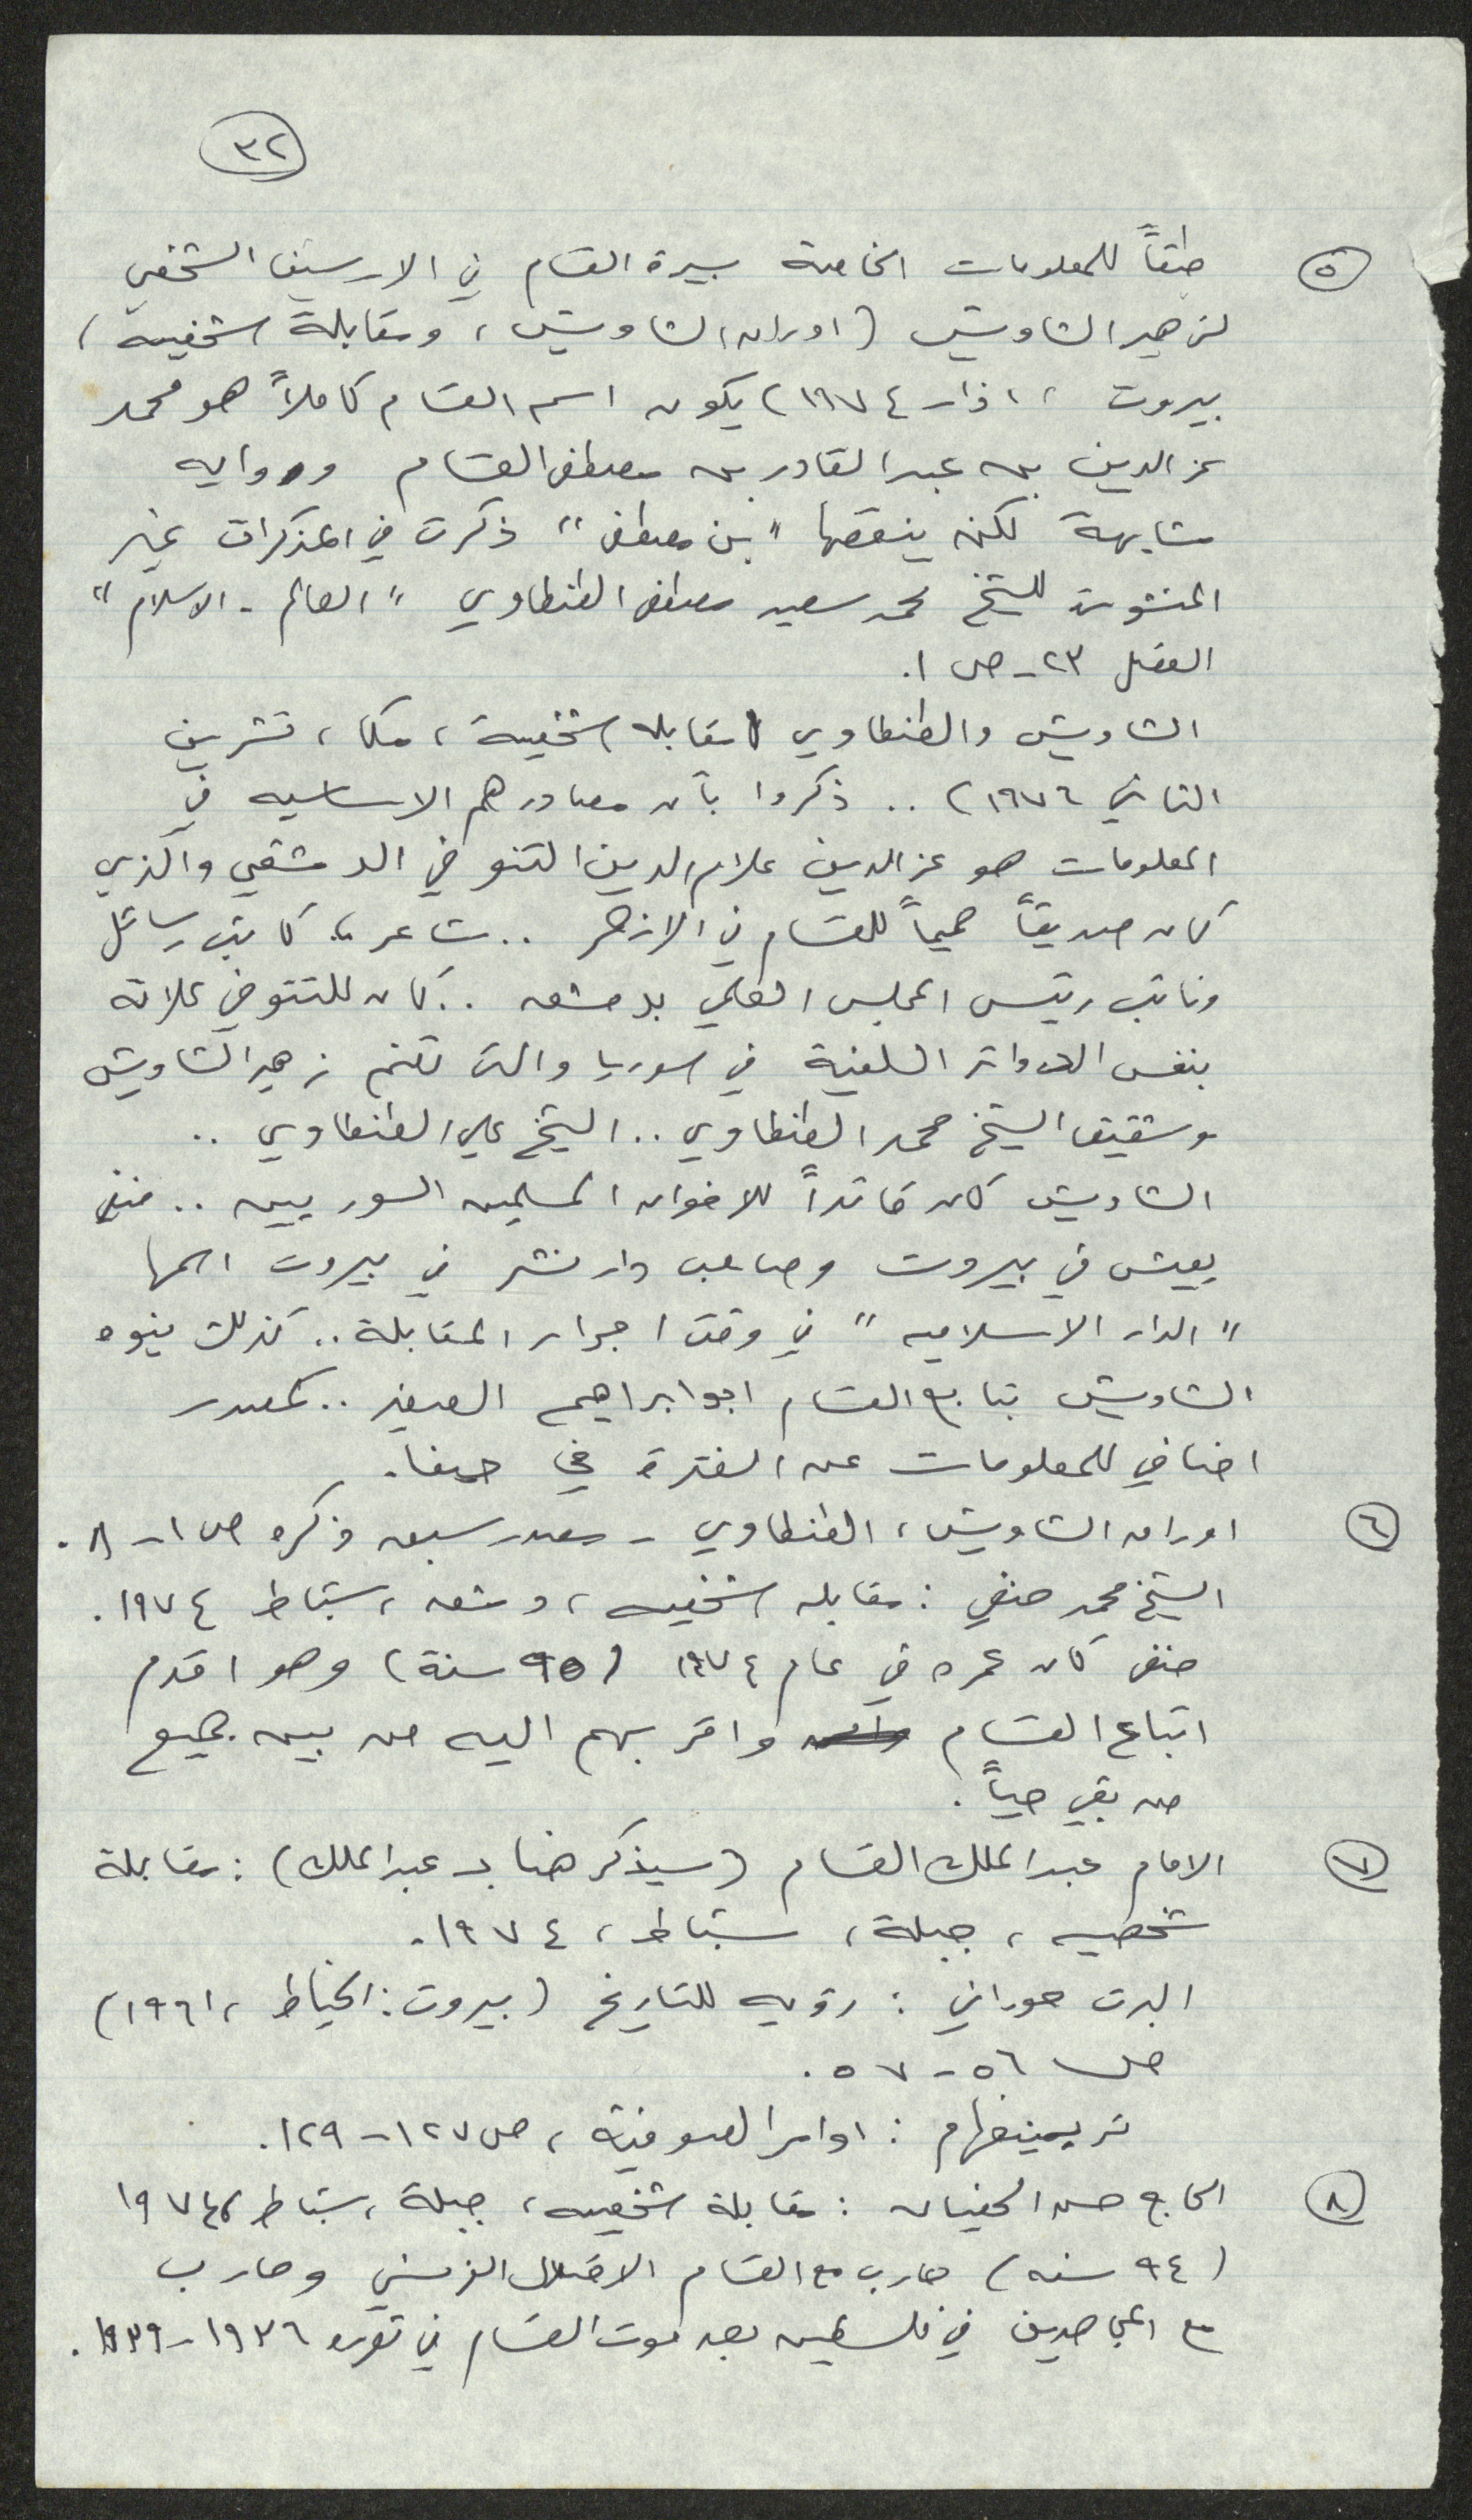 ٣٢
٥ طبقاً للمعلومات الخاصة بسيرة القسام في الارشيف الشخصي
لزهير الشاويش (اوراق الشاويش، ومقابلة شخصية،
بيروت، اذار ١٩٧٤) يكون اسم القسام كاملاً هو محمد
عز الدين بن عبد القادر بن مصطفى القسام وروايه
مشابهة لكن ينقصها "بن مصطفى" ذكرت في المذكرات غير
المنشورة للشيخ محمد سعيد مصطفى الطنطاوي "العالم - الاسلام"
الفصل ٢٣ - ص ١.
الشاويش والطنطاوي (مقابله شخصية، مكا، تشرين
الثاني ١٩٧٦) .. ذكروا بأن مصادرهم الاساسيه في
المعلومات هو عز الدين علام الدين التنوخي الدمشقي والذي
كان صديقاً حميماً للقسام في الازهر .. شاعر، كاتب رسائل
ونائب رئيس المجلس العلمي بدمشق .. كان للتنوخي علاقة
بنفس الدوائر السلفية في سوريا والتي تضم زهير الشاويش
وشقيق الشيخ محمد الطنطاوي .. الشيخ علي الطنطاوي ..
الشاويش كان قائداً للاخوان المسلمين السوريين .. منفي
يعيش في بيروت وصاحب دار نشر في بيروت اسمها
"الدار الاسلاميه" في وقت اجراء المقابلة .. كذلك ينوه
الشاويش بتابع القسام ابو ابراهيم الصغير .. كمصدر
اضافي للمعلومات عن الفترة في حيفا.
٦ اوراق الشاويش، الطنطاوي - مصدر سبق ذكره ص ١ - ٨.
الشيخ محمد حنفي: مقابله شخصيه، دمشق، شباط ١٩٧٤.
حنفي كان عمره في عام ١٩٧٤ (٩٥ سنة) وهو اقدم
اتباع القسام واقربهم اليه من بين جميع
من بقي حياً.
٧ الامام عبد الملك القسام (سيذكر هنا بـ عبد الملك): مقابلة
شخصيه، جبلة، شباط، ١٩٧٤.
البرت حوراني: رؤيه للتاريخ (بيروت: الخياط، ١٩٦١)
ص ٥٦ - ٥٧.
تريمينغهام: اوامر الصوفية، ص ١٢٧ - ١٢٩.
٨ الحاج حسن الحفيان: مقابلة شخصيه، جبلة، شباط، ١٩٧٤
(٩٤ سنه) حارب مع القسام الاحتلال الفرنسي وحارب
مع المجاهدين في فلسطين بعد موت القسام في ثورة ١٩٣٦ - ١٩٣٩.